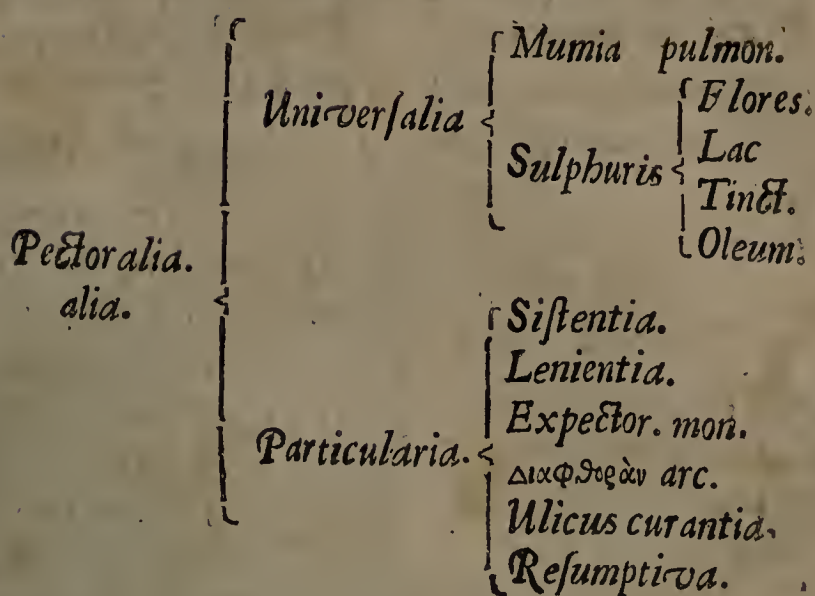 Pectoralia.
alia.
Univerſalia
Mumia pulmon.
Sulphuris
Flores.
Lac
Tinct.
Oleum.
Particularia.
Siſtentia.
Lenientia.
Expector. mon.
Διαφθορὰν arc.
Ulicus curantia.
Reſumptiva.